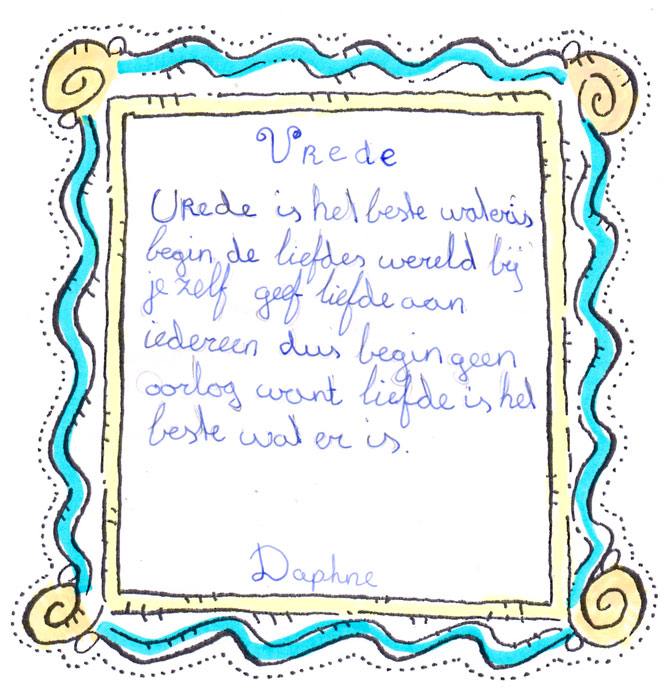 Vrede
Vrede is het beste wateris
begin de liefdes wereld bij
je zelf geef liefde aan
iedereen dus begin geen
oorlog want liefde is het
beste wat er is.
Daphne